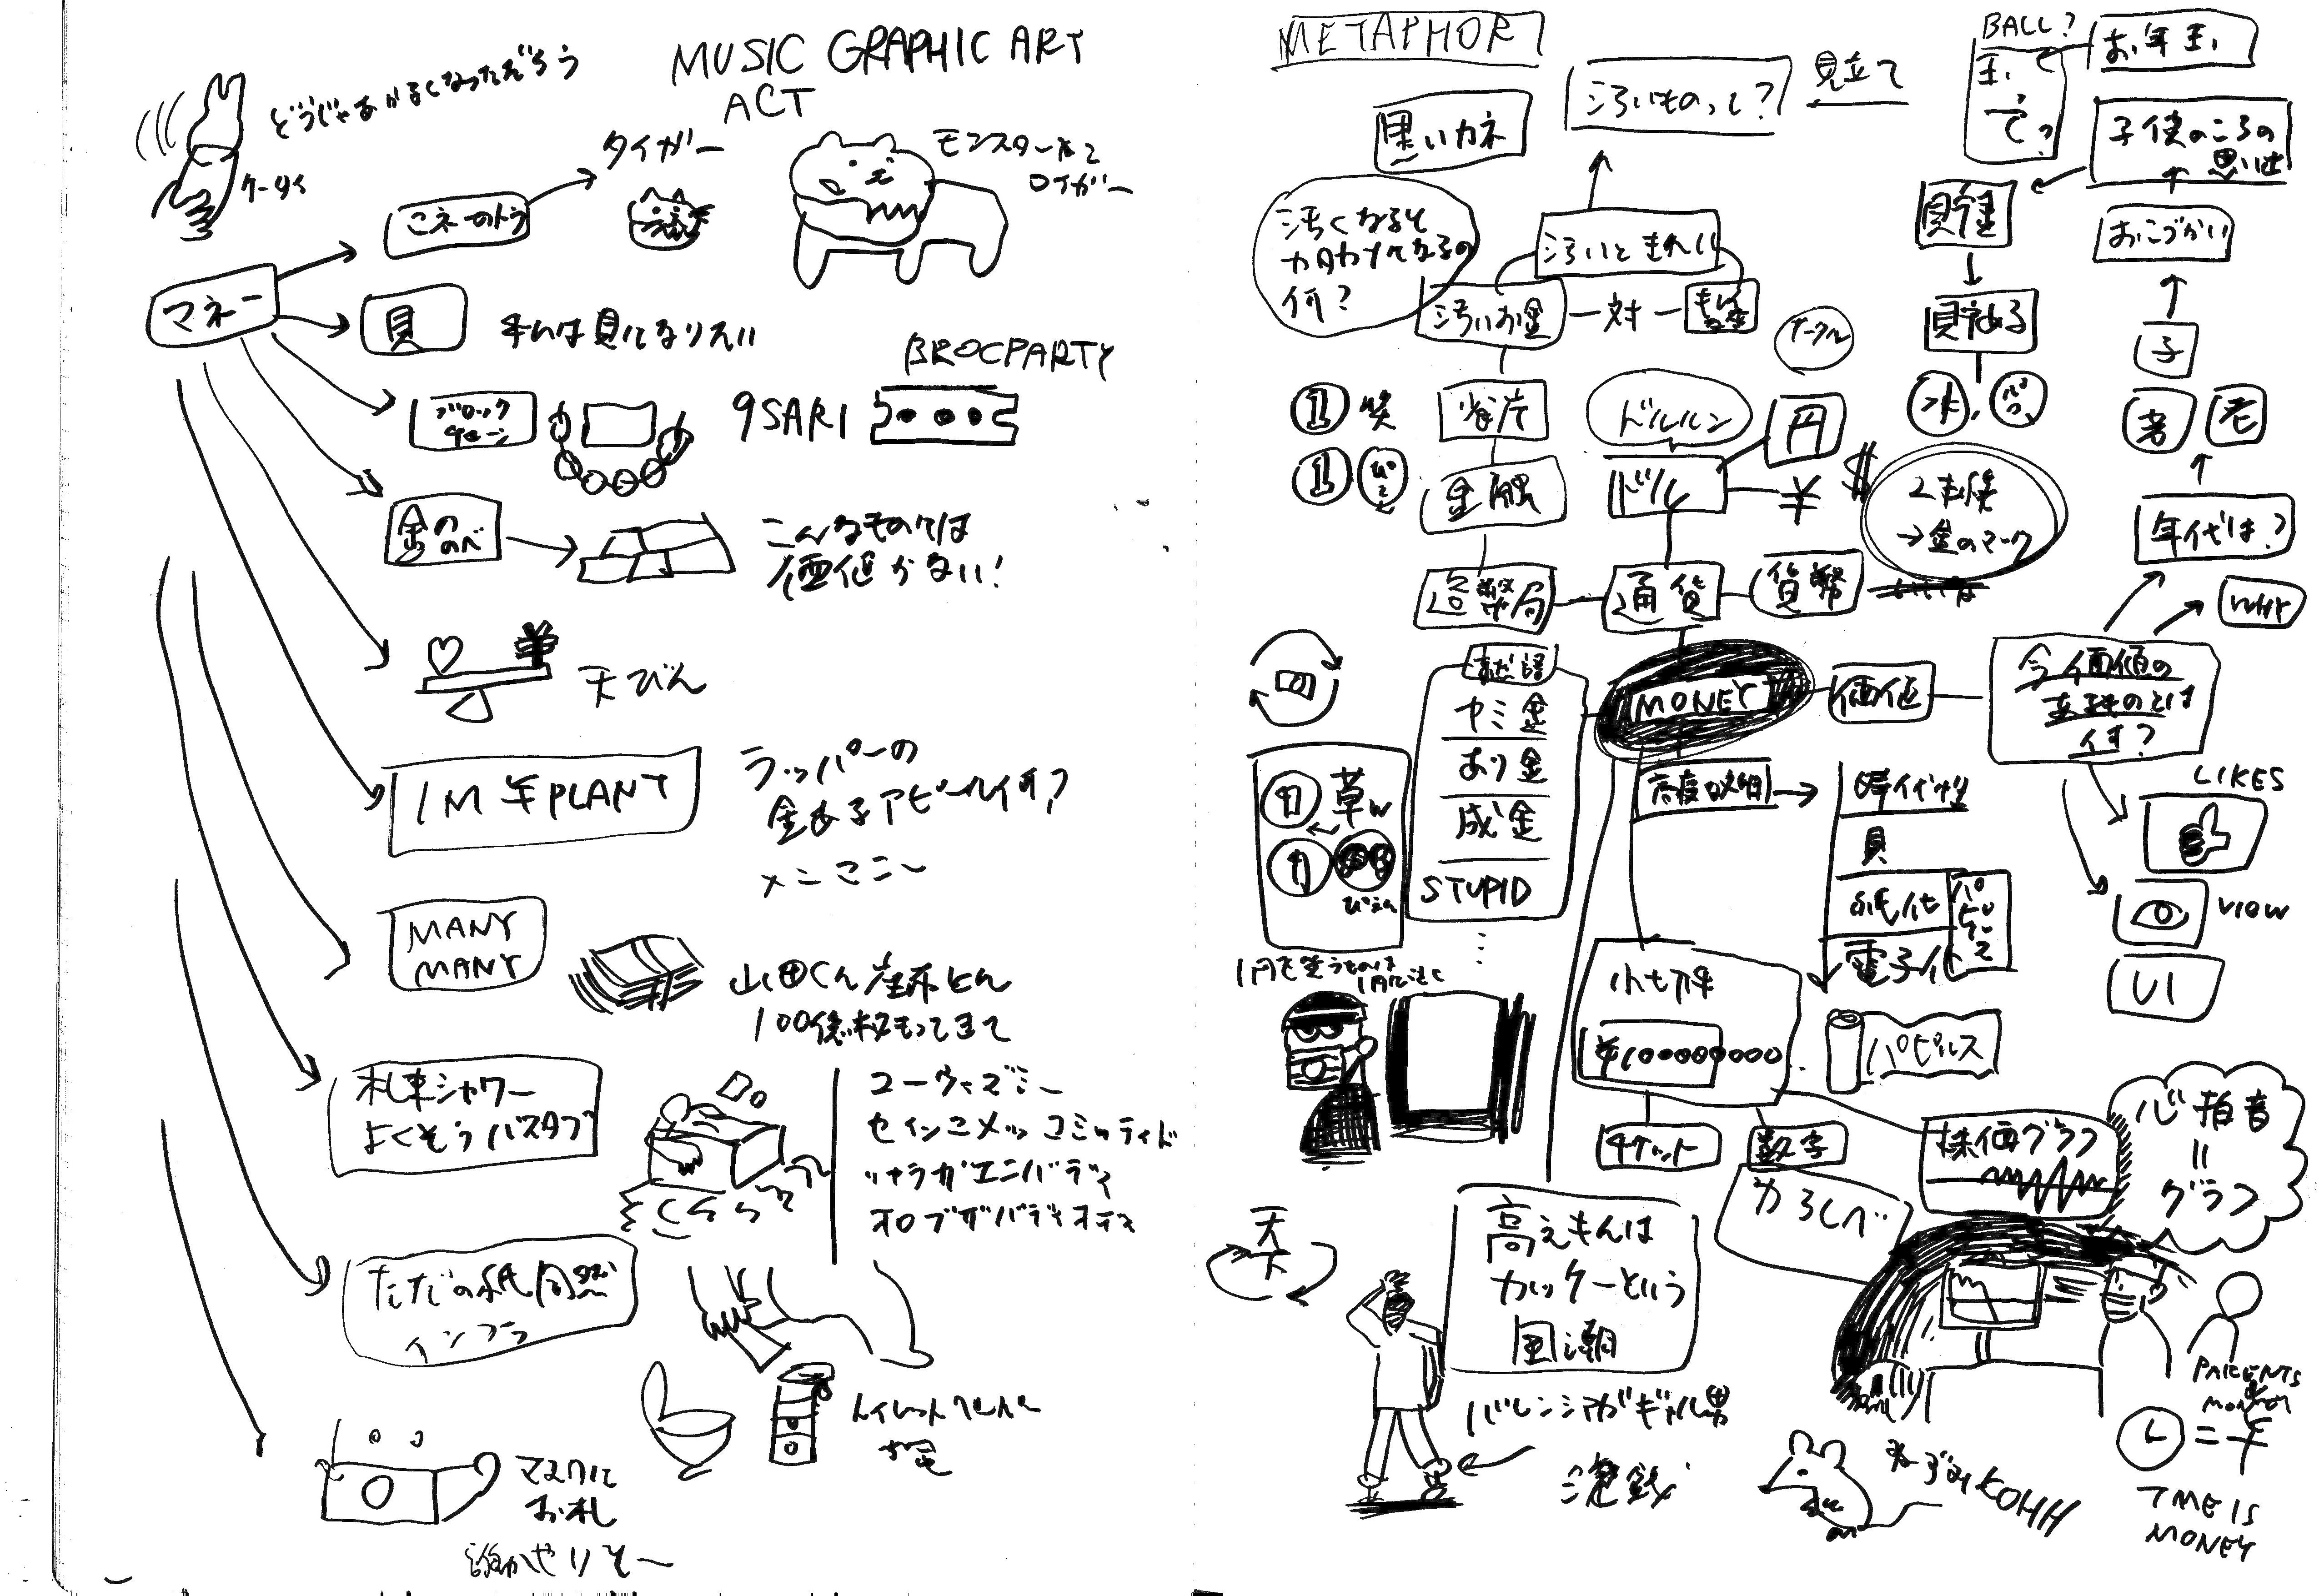 MUSIC GRAPHIC ART
ACT
ケータイ
タイガー
マネーのトラ
モンスターas
ロイガー
マネー
貝
BROCPARTY
ブロック
チェーン
9SARI
金の
のべ
こんなものでは
価値がない!
天びん
1M ¥ PLANT
ラッパーの
金あるアピール何?
メニマニー
MANY
MANY
山田くん座布とん
100億枚もってきて
札束シャワー
よくそうバスタブ
ユーウィズミー
セイソニメッ コミッティド
ただの紙同然
インフラ
トイレットペーパー
マスクに
お札
誰かやりそー
METAPHOR
汚いものって?
見立て
黒いカネ
汚くなると
何?
汚いときれい
汚いお金
対
BALL?
玉
って?
お年玉
子供のころの
思い出
おこづかい
貯金
貯める
水
子
若
老
年代は?
WHY
サークル
1
笑
1
省庁
金融
ドルルン
ドル
円
¥
$
2本線
→金のマーク
造幣局
通貨
貨幣
MONEY
価値
今価値の
あるものとは
何?
LIKES
VIEW
UI
ヤミ金
あり金
成金
STUPID
高度成長期
時代性
貝
紙化
電子化
パピルス
草w
ぴえん
1円を笑うものは
1円に泣く
小切手
¥100000000
パピルス
チケット
数字
株価グラフ
心拍音
=
グラフ
天
下
高えもんは
カッケーという
風潮
バレンシアガギャル男
泡銭
ねずみKOHH
PARENTS
MONEY
=¥
TIME IS
MONEY